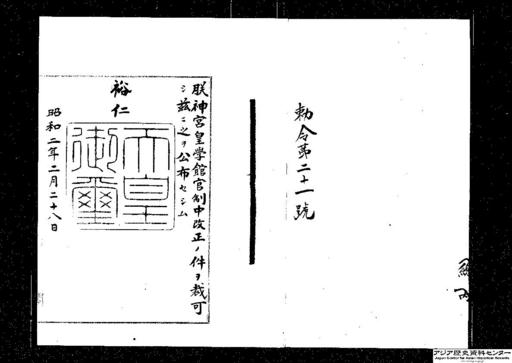 勅令第二十一號
朕神宮皇学館官制中改正ノ件ヲ裁可
シ茲ニ之ヲ公布セシム
裕仁
天皇御璽
昭和二年二月二十八日
アジア歴史資料センター
Japan Center for Asian Historical Records